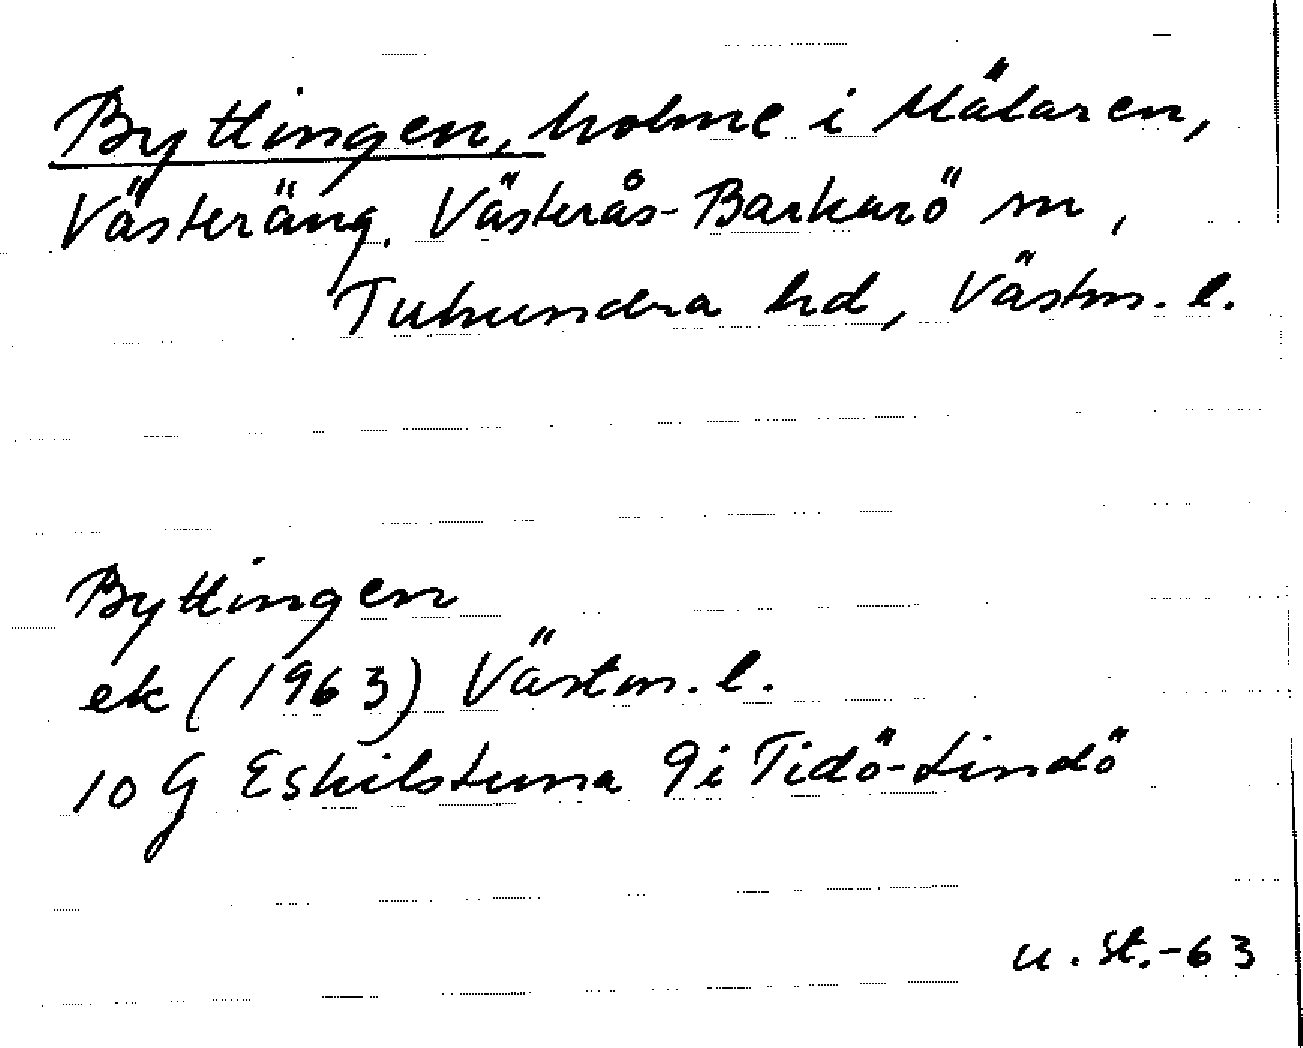 Byttingen, holme i Mälaren,
Västeräng. Västerås-Barkarö sn,
Tuhundra hd, Västm. l.
Byttingen
ek (1963) Västm. l.
10 G Eskilstuna 9i Tidö-Lindö
u. st.-63